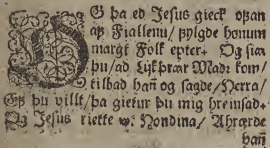 OG þa ed Jesus gieck ofzan
af Fiallenu/ fylgde honum
margt Folk epter. Og siaa
þu/ ad Lijkþraar Madr kom/
tilbad hañ og sagde/ Herra/
Ef þu villt/ þa gietur þu mig hreinsad.
Og Jesus riette w. Hondina/ Ahrærde
hañ